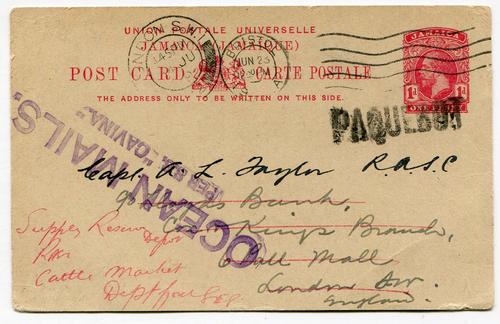 UNION POSTALE UNIVERSELLE
JAMAICA (JAMAIQUE)
POST CARD CARTE POSTALE
THE ADDRESS ONLY TO BE WRITTEN ON THIS SIDE.
JAMAICA
1d 1d
ONE PENNY
LONDON S.W.1
BRISTOL
JUN 23
PAQUEBOT
OCEAN MAILS.
PER S.S. "CAVINA."
Capt. A L Taylor R.A.S.C
Bank,
Kings Branch,
Pall Mall
London SW.
England.
Supply Reserve
Depot
Cattle Market
Deptford SE8